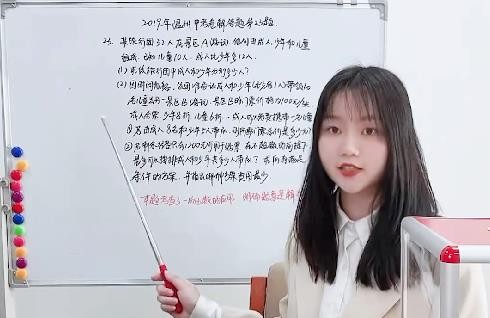 2019年温州中考卷解答题第23题
23. 某旅行团32人在景区A游玩,他们由成人、少年和儿童
组成. 已知儿童10人,成人比少年多12人.
(1) 求该旅行团中成人和少年分别多少人?
(2) 因时间充裕,该团准备让成人和少年(至少各1人)带领10
名儿童去另一景区B游玩. 景区B的门票价格为100元/张
成人全票,少年8折,儿童6折,一成人可以免费携带一名儿童
① 若由成人8名和少年5人带队,则所需门票总价是多少元?
② 若剩余经费只有1200元可用于购票,在不超额的前提下
最多可以安排成人和少年共多少人带队?求所有满足
条件的方案,并指出哪种方案费用最少.